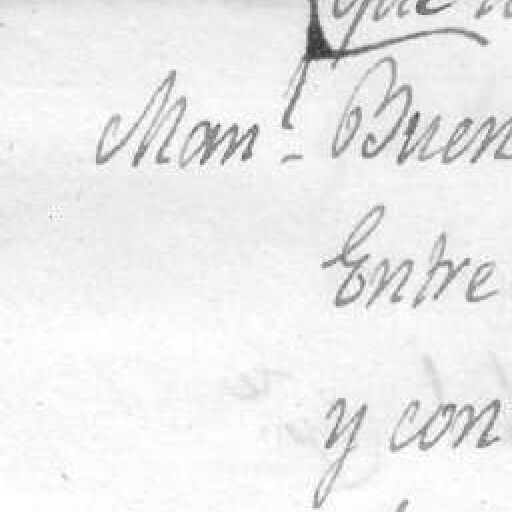 Man! - Buen
Entre
y con